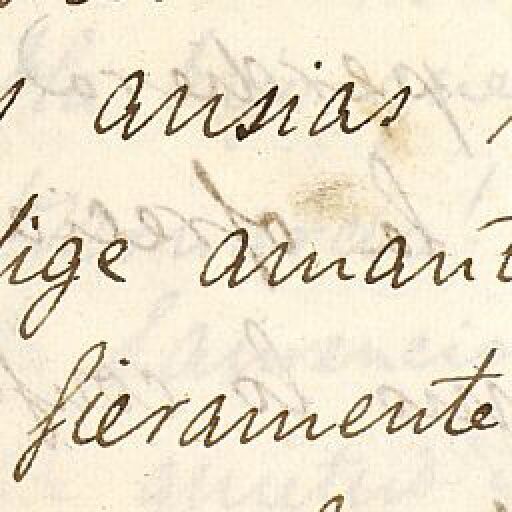 ansias
lige amant
fieramente